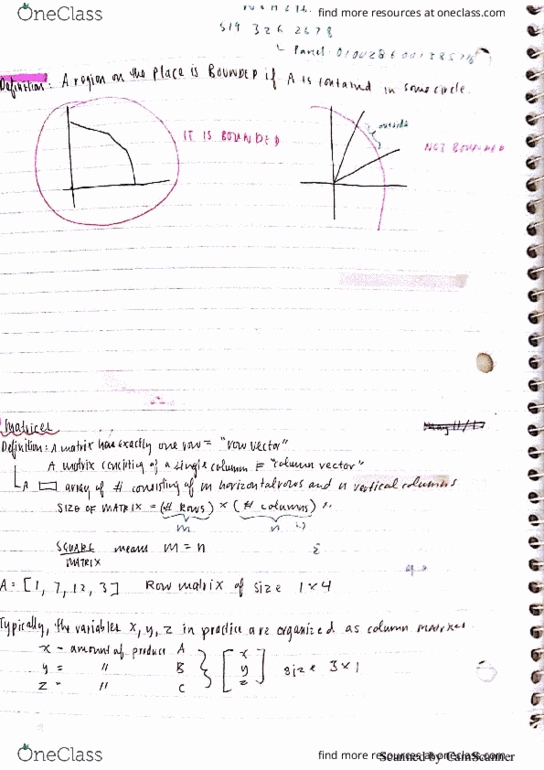 OneClass
find more resources at oneclass.com
519 326 2678
Definition: A region on the place is BOUNDED if A is contained in some circle.
IT IS BOUNDED
outside
NOT BOUNDED
Matrices
May 11/17
Definition: A matrix has exactly one row = "row vector"
A matrix consisting of a single column = "column vector"
A array of # consisting of m horizontal rows and n vertical columns
SIZE OF MATRIX = (# Rows) × (# columns)
m n
SQUARE means m = n
MATRIX
A = [1, 7, 12, 3] Row matrix of size 1×4
Typically, the variables x, y, z in practice are organized as column matrixes
x = amount of produce A
y = " B
z = " C
[x
y
z] size 3×1
OneClass
find more resources at oneclass.com
Scanned by CamScanner